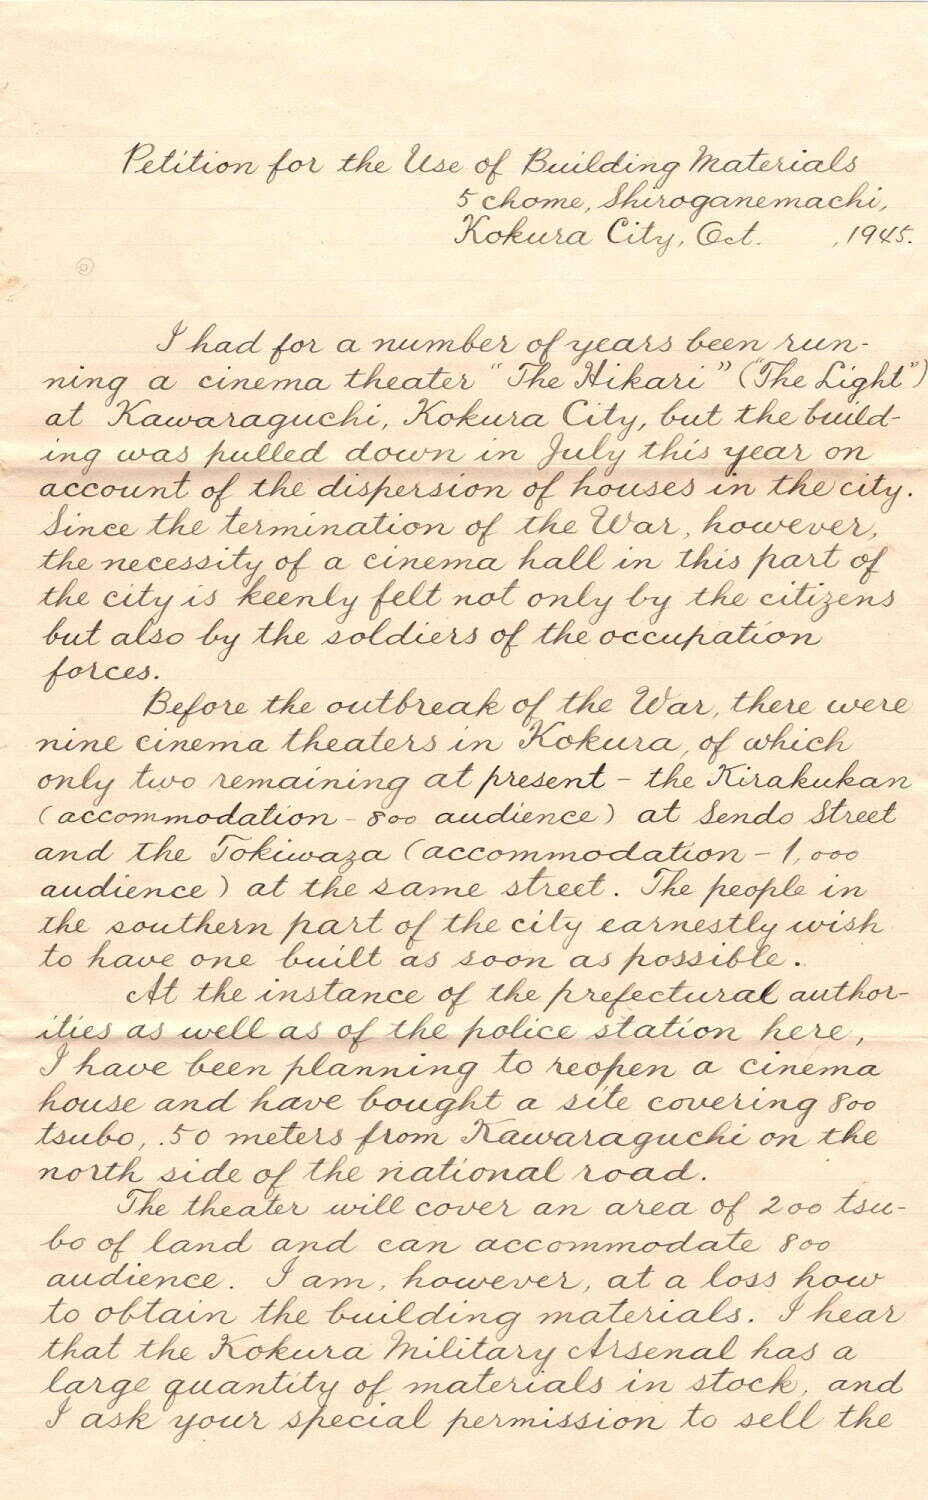 Petition for the Use of Building Materials
5 chome, Shiroganemachi,
Kokura City, Oct. , 1945.
I had for a number of years been run-
ning a cinema theater "The Hikari" ("The Light")
at Kawaraguchi, Kokura City, but the build-
ing was pulled down in July this year on
account of the dispersion of houses in the city.
Since the termination of the War, however,
the necessity of a cinema hall in this part of
the city is keenly felt not only by the citizens
but also by the soldiers of the occupation
forces.
Before the outbreak of the War, there were
nine cinema theaters in Kokura, of which
only two remaining at present - the Kirakukan
(accommodation - 800 audience) at Sendo Street
and the Tokiwaza (accommodation - 1,000
audience) at the same street. The people in
the southern part of the city earnestly wish
to have one built as soon as possible.
At the instance of the prefectural author-
ities as well as of the police station here,
I have been planning to reopen a cinema
house and have bought a site covering 800
tsubo, .50 meters from Kawaraguchi on the
north side of the national road.
The theater will cover an area of 200 tsu-
bo of land and can accommodate 800
audience. I am, however, at a loss how
to obtain the building materials. I hear
that the Kokura Military Arsenal has a
large quantity of materials in stock, and
I ask your special permission to sell the